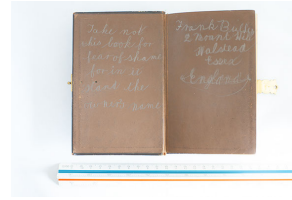 Take not
this book for
fear of shame
for in it
the
owners name
Frank
2 Mount Hill
Halstead
Essex
England